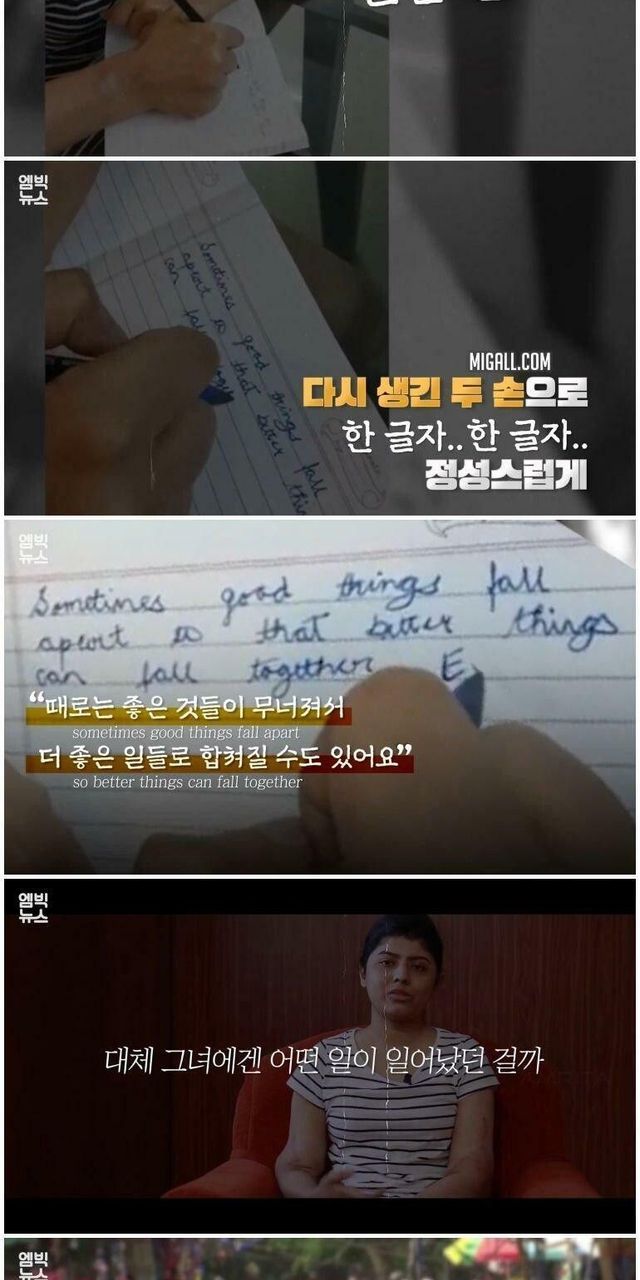 엠빅
뉴스
Sometimes
apart so good
can fall that things
better fall
MIGALL.COM
다시 생긴 두 손으로
한 글자.. 한 글자..
정성스럽게
엠빅
뉴스
Sometimes good things fall
apart so that better things
can fall together E
“때로는 좋은 것들이 무너져서
sometimes good things fall apart
더 좋은 일들로 합쳐질 수도 있어요”
so better things can fall together
엠빅
뉴스
대체 그녀에겐 어떤 일이 일어났던 걸까
엠빅
뉴스